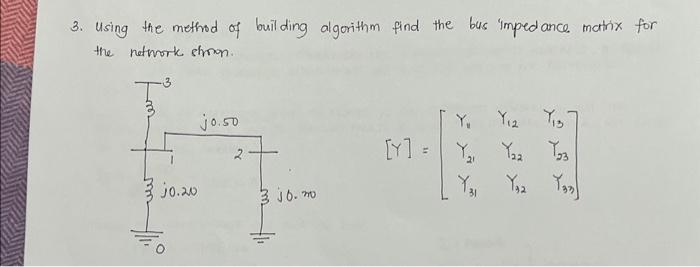 3. Using the method of building algorithm find the bus impedance matrix for
the network shown.
3
j0.50
1
2
j0.20
0
[Y] = 
Y11 Y12 Y13
Y21 Y22 Y23
Y31 Y32 Y33